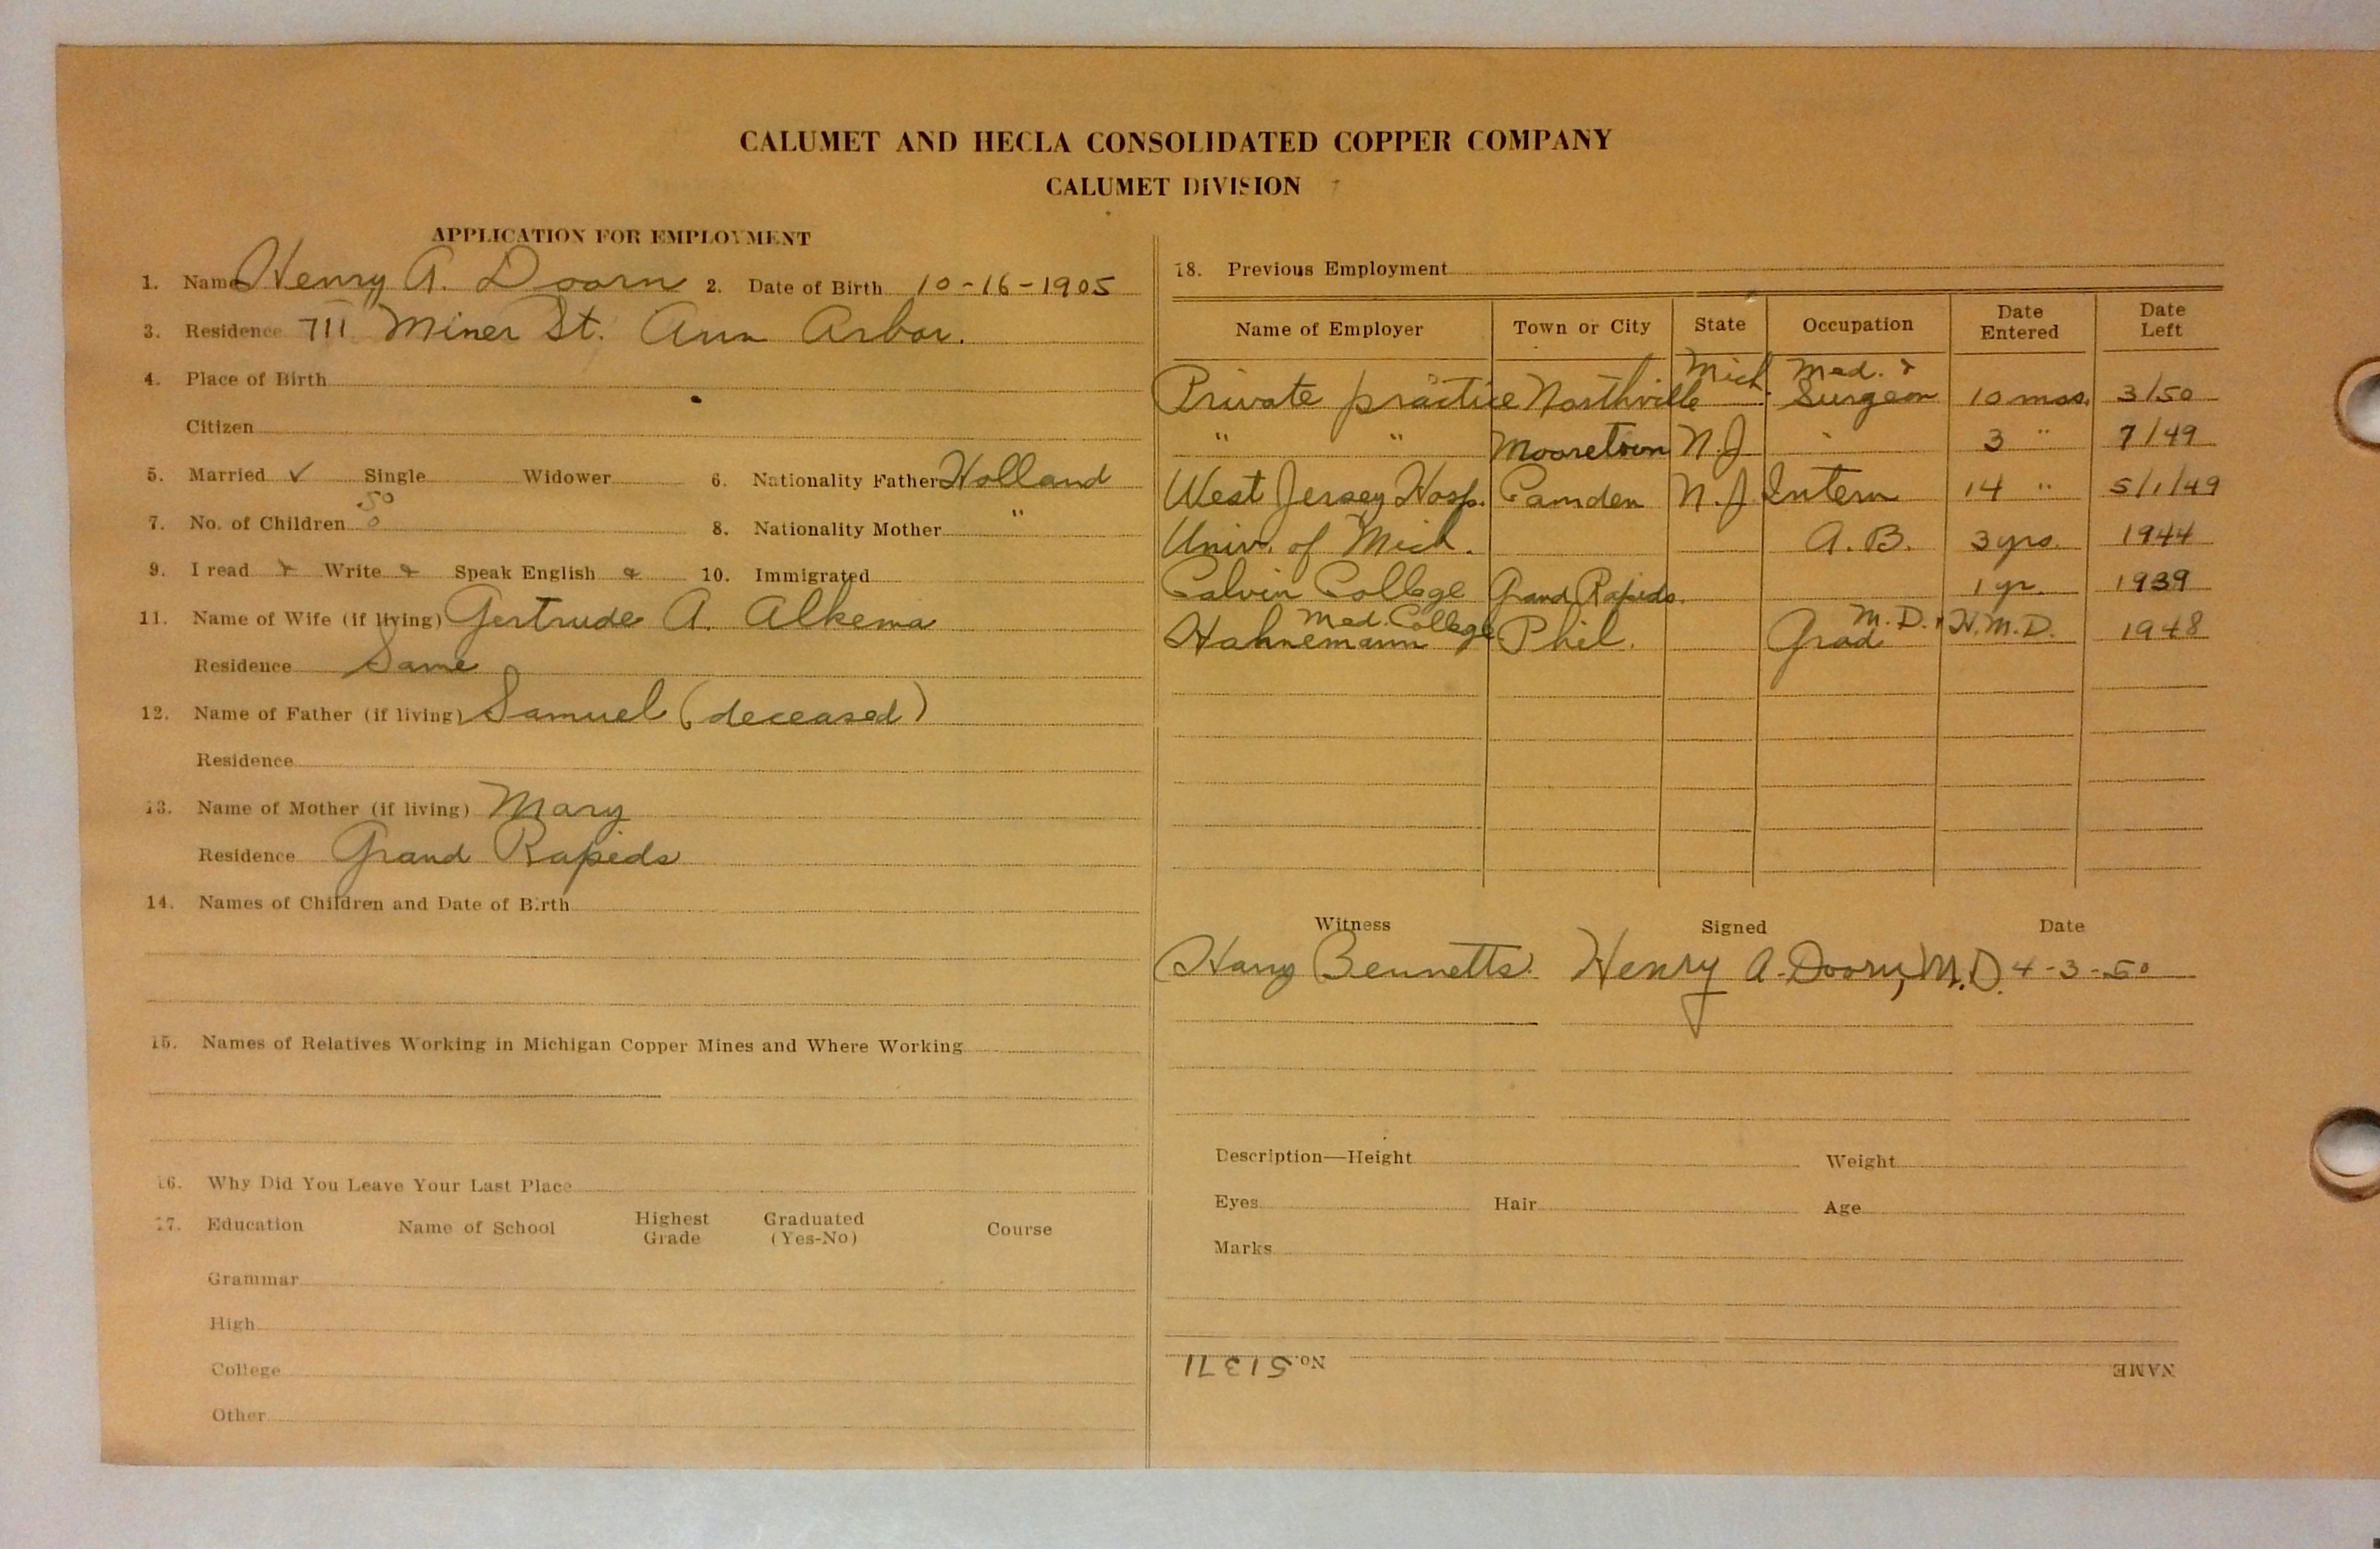 CALUMET AND HECLA CONSOLIDATED COPPER COMPANY
CALUMET DIVISION
APPLICATION FOR EMPLOYMENT
1. Name Henry A. Doorn 2. Date of Birth 10-16-1905
3. Residence 711 Miner St. Ann Arbor.
4. Place of Birth
Citizen
5. Married ✓ Single Widower 6. Nationality Father Holland
50
7. No. of Children 0 8. Nationality Mother "
9. I read Write Speak English 10. Immigrated
11. Name of Wife (if living) Gertrude A. Alkema
Residence Same
12. Name of Father (if living) Samuel (deceased)
Residence
13. Name of Mother (if living) Mary
Residence Grand Rapids
14. Names of Children and Date of Birth
15. Names of Relatives Working in Michigan Copper Mines and Where Working
16. Why Did You Leave Your Last Place
17. Education Name of School Highest Grade Graduated (Yes-No) Course
Grammar
High
College
Other
18. Previous Employment
Name of Employer Town or City State Occupation Date Entered Date Left
Private practice Northville Mich. Med. & Surgeon 10 mos. 3/50
" " Mooretown N.J " 3 " 7/49
West Jersey Hosp. Camden N.J Intern 14 " 5/1/49
Univ. of Mich. A.B. 3 yrs. 1944
Calvin College Grand Rapids. 1 yr. 1939
Hahnemann Med. College Phil. Grad M.D., H.M.D. 1948
Witness Signed Date
Harry Bennetts Henry A. Doorn, M.D. 4-3-50
Description—Height Weight
Eyes Hair Age
Marks
NAME No. 51371